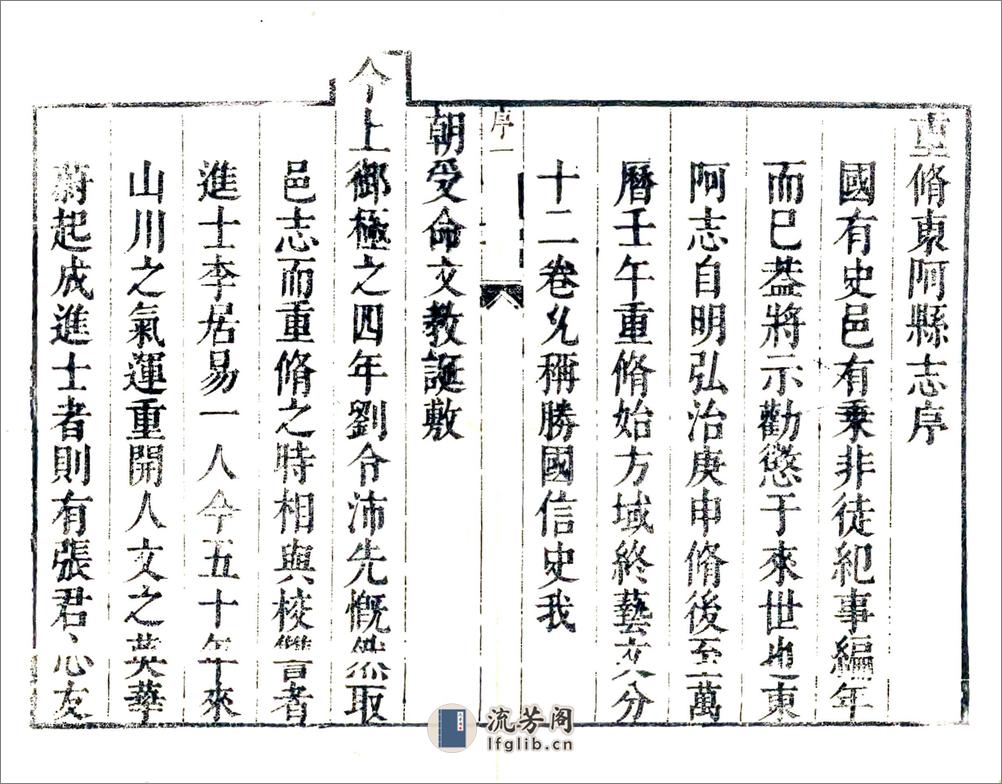 重脩東阿縣志序
國有史邑有乗非徒紀事編年
而已葢將示勸懲于來世也東
阿志自明弘治庚申脩後至萬
曆壬午重脩始方域終藝文分
十二卷允稱勝國信史我
序一
朝受命文教誕敷
今上御極之四年劉令沛先慨然取
邑志而重脩之時相與校讐者
進士李居易一人今五十年來
山川之氣運重開人文之英華
蔚起成進士者則有張君心友
流芳阁
lfglib.cn